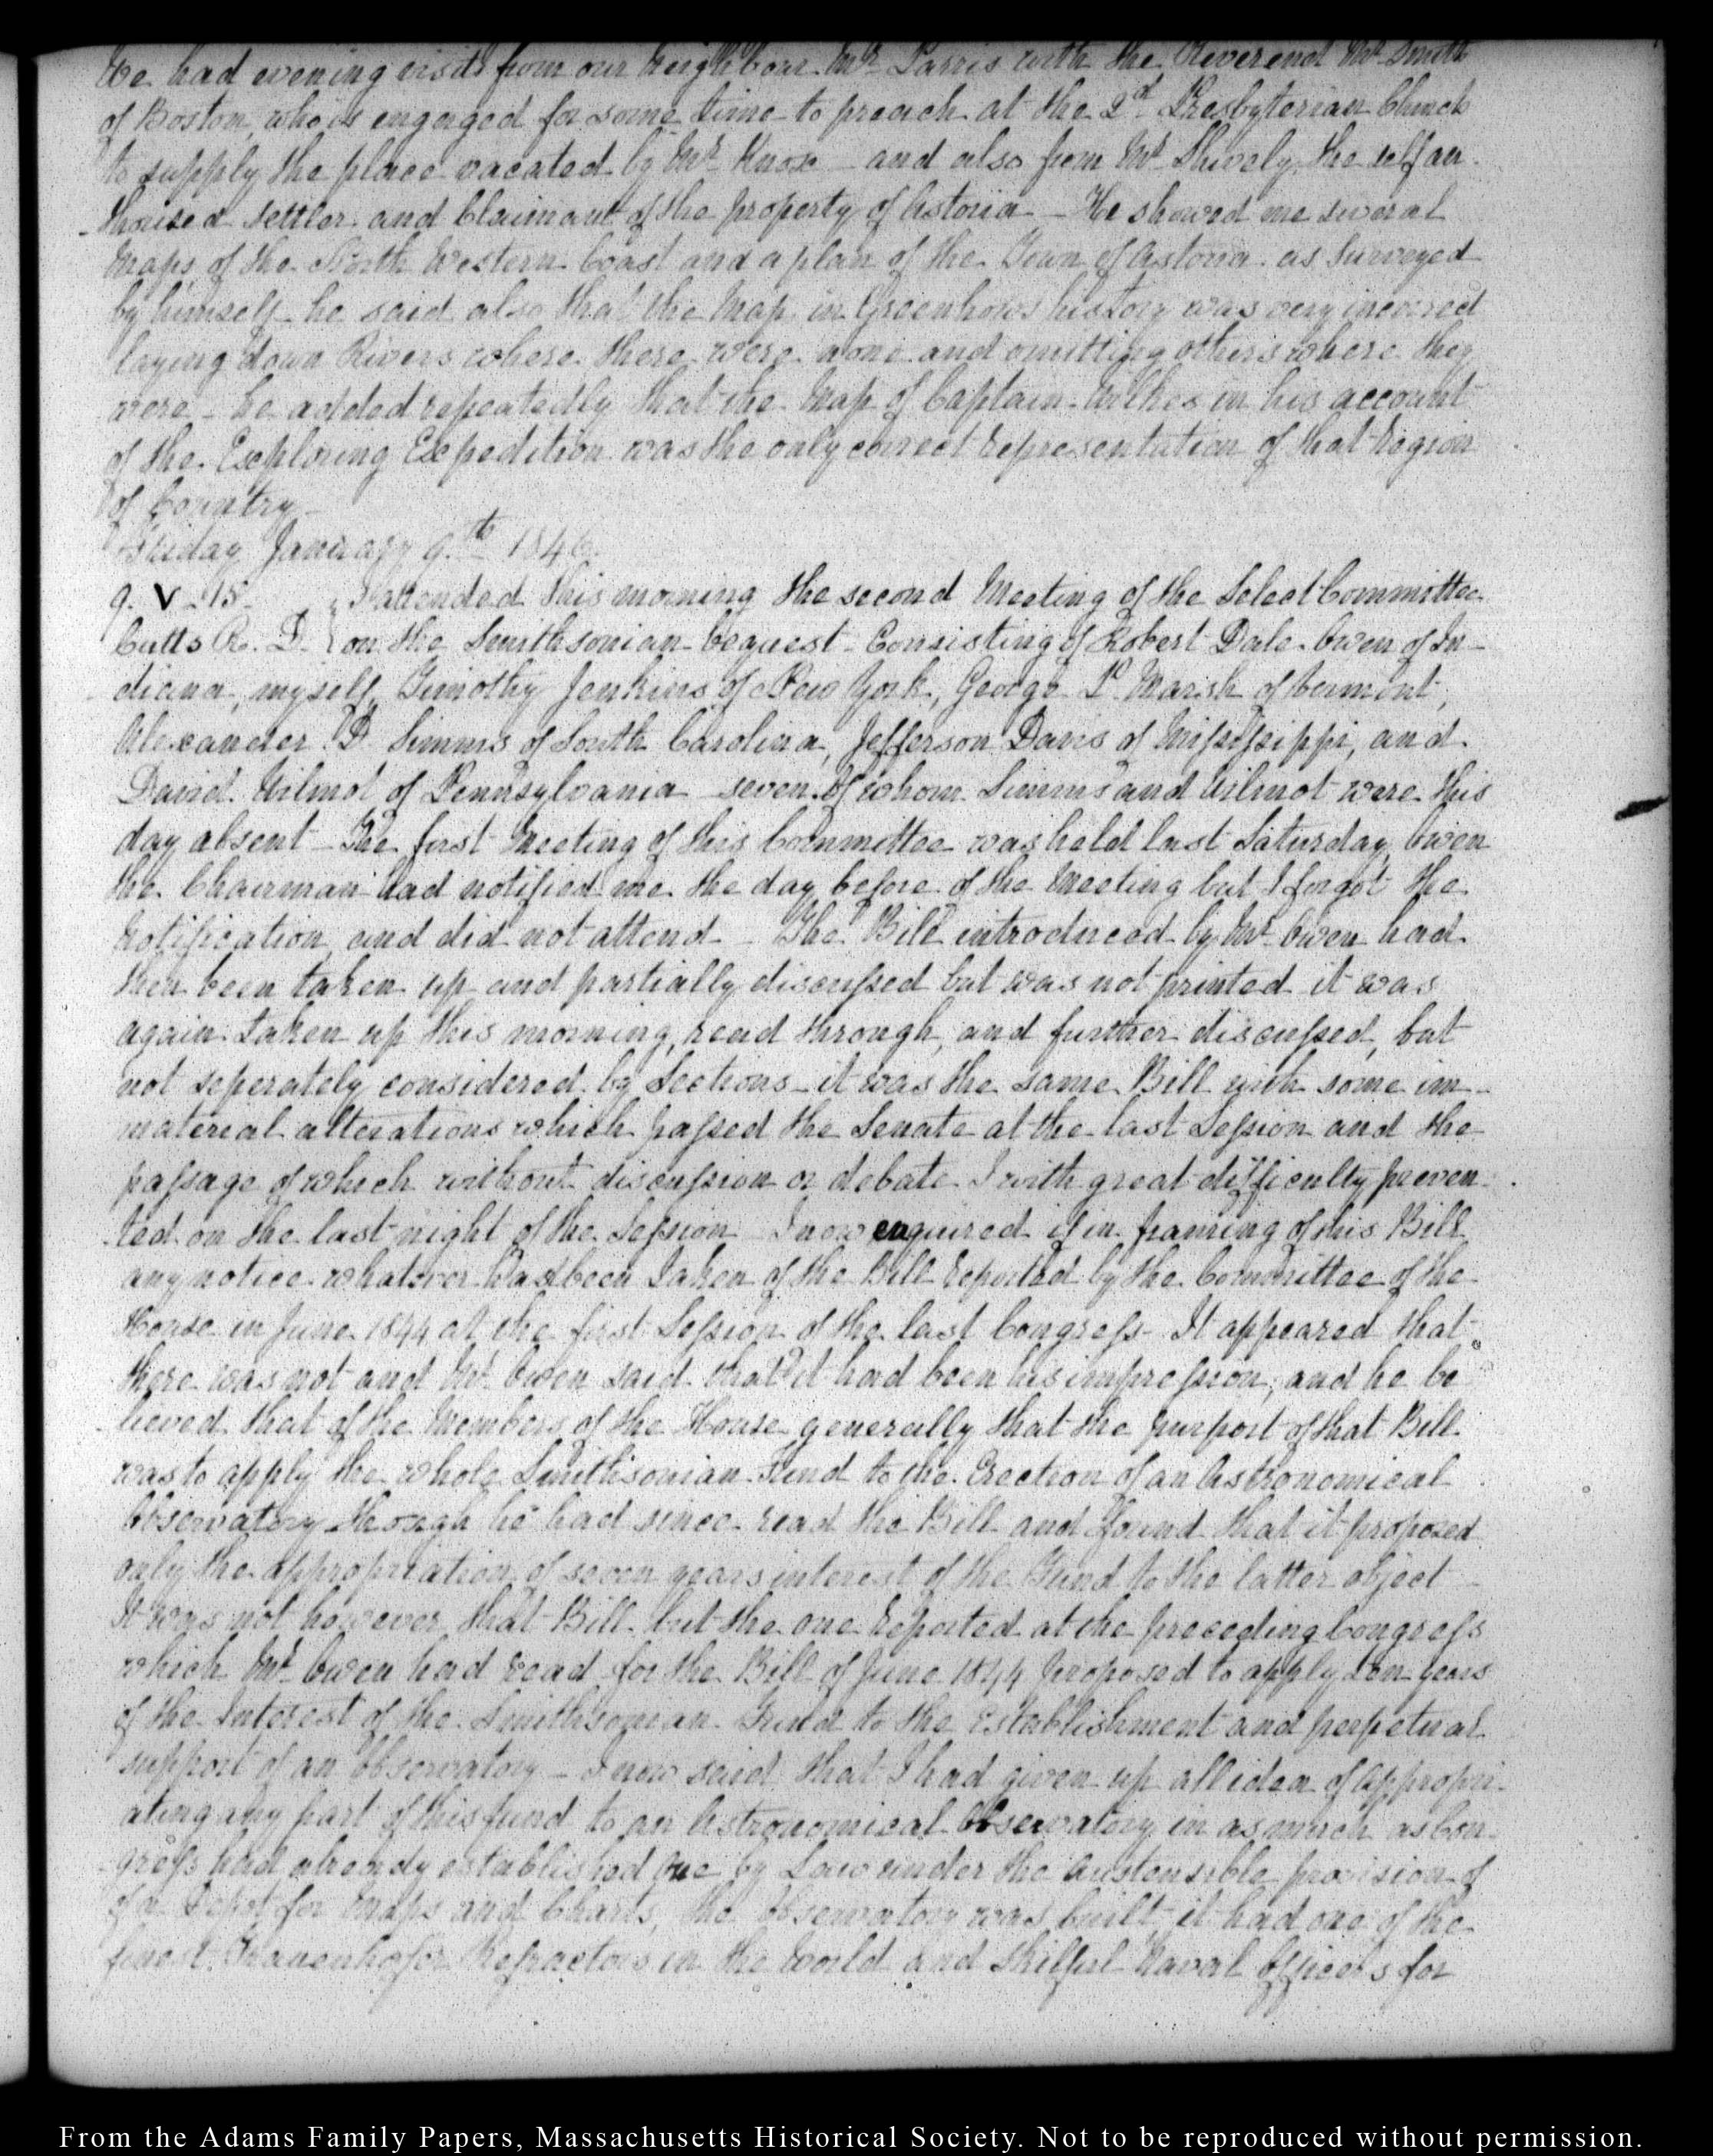 We had evening visits from our Neighbour Mr Parris with the Reverend Mr Smith
of Boston, who is engaged for some time to preach at the 2d Presbyterian Church
to supply the place vacated by Mr Knox – and also from Mr Shively, the self au-
thorised settler and Claimant of the property of Astoria – He showed me several
Maps of the North Western Coast and a plan of the Town of Astoria as surveyed
by himself – he said also that the Map in Greenhows history was very incorrect
laying down Rivers where there were none and omitting others where they
were – he added repeatedly that the Map of Captain Wilkes in his account
of the Exploring Expedition was the only correct representation of that region
of Country –
Friday January 9.th 1846.
9. V. 15. I attended this morning the second Meeting of the Select Committee
Cutts R. D. on the Smithsonian bequest – Consisting of Robert Dale Owen of In-
diana, myself, Timothy Jenkins of New York, George P. Marsh of Vermont,
Alexander D. Simms of South Carolina, Jefferson Davis of Mississippi, and
David Wilmot of Pennsylvania – seven. Of whom Simms and Wilmot were this
day absent – The first Meeting of this Committee was held last Saturday, Owen
the Chairman had notified me the day before of the Meeting but I forgot the
Notification, and did not attend – The Bill introduced by Mr Owen had
then been taken up and partially discussed but was not printed it was
again taken up this morning, read through, and further discussed, but
not seperately considered by Sections – it was the same Bill with some im-
material alterations which passed the Senate at the last Session and the
passage of which without discussion or debate I with great difficulty preven-
ted on the last night of the Session – I now enquired if in framing of this Bill
any notice whatever had been taken of the Bill reported by the Committee of the
House in June 1844 at the first Session of the last Congress – It appeared that
there was not and Mr Owen said that it had been his impression, and he be
lieved that of the Members of the House generally that the purport of that Bill
was to apply the whole Smithsonian Fund to the Erection of an Astronomical
Observatory though he had since read the Bill and found that it proposed
only the appropriation of seven years interest of the Fund to the latter object –
It was not however that Bill but the one reported at the preceding Congress
which Mr Owen had read for the Bill of June 1844 proposed to apply ten years
of the Interest of the Smithsonian Fund to the establishment and perpetual
support of an Observatory – I now said that I had given up all idea of appropri-
ating any part of this fund to an Astronomical Observatory in as much as Con-
gress had already established one by Law under the austensible provision of
of a Depot for Maps and Charts, the Observatory was built, it had one of the
finest Frauenhofer Refractors in the World and skilful Naval Officers for
From the Adams Family Papers, Massachusetts Historical Society. Not to be reproduced without permission.